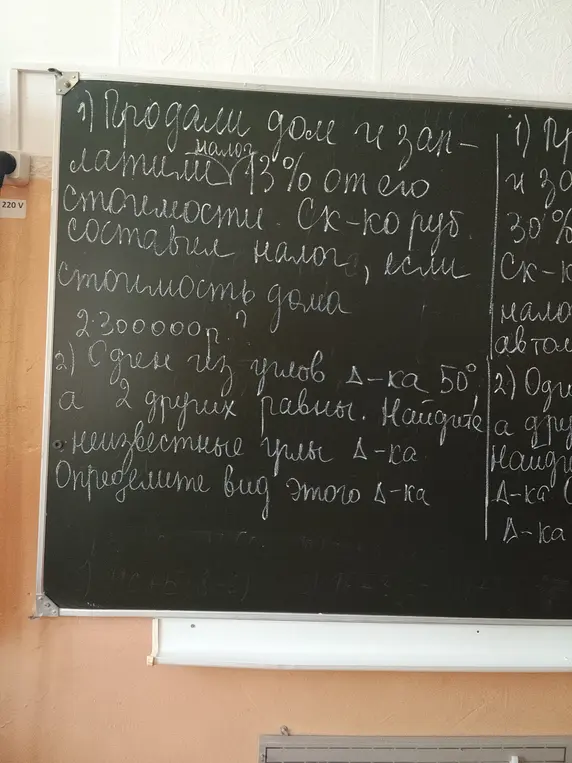 220 V
1) Продали дом и зап-
латили налог 13% от его
стоимости. Ск-ко руб.
составил налог, если
стоимость дома
2.300000р.?
2) Один из углов Δ-ка 50°
а 2 других равны. Найдите
неизвестные углы Δ-ка
Определите вид этого Δ-ка
1) Пр
и за
30%
Ск-к
нало
автом
2) Оди
а дру
найди
Δ-ка
Δ-ка